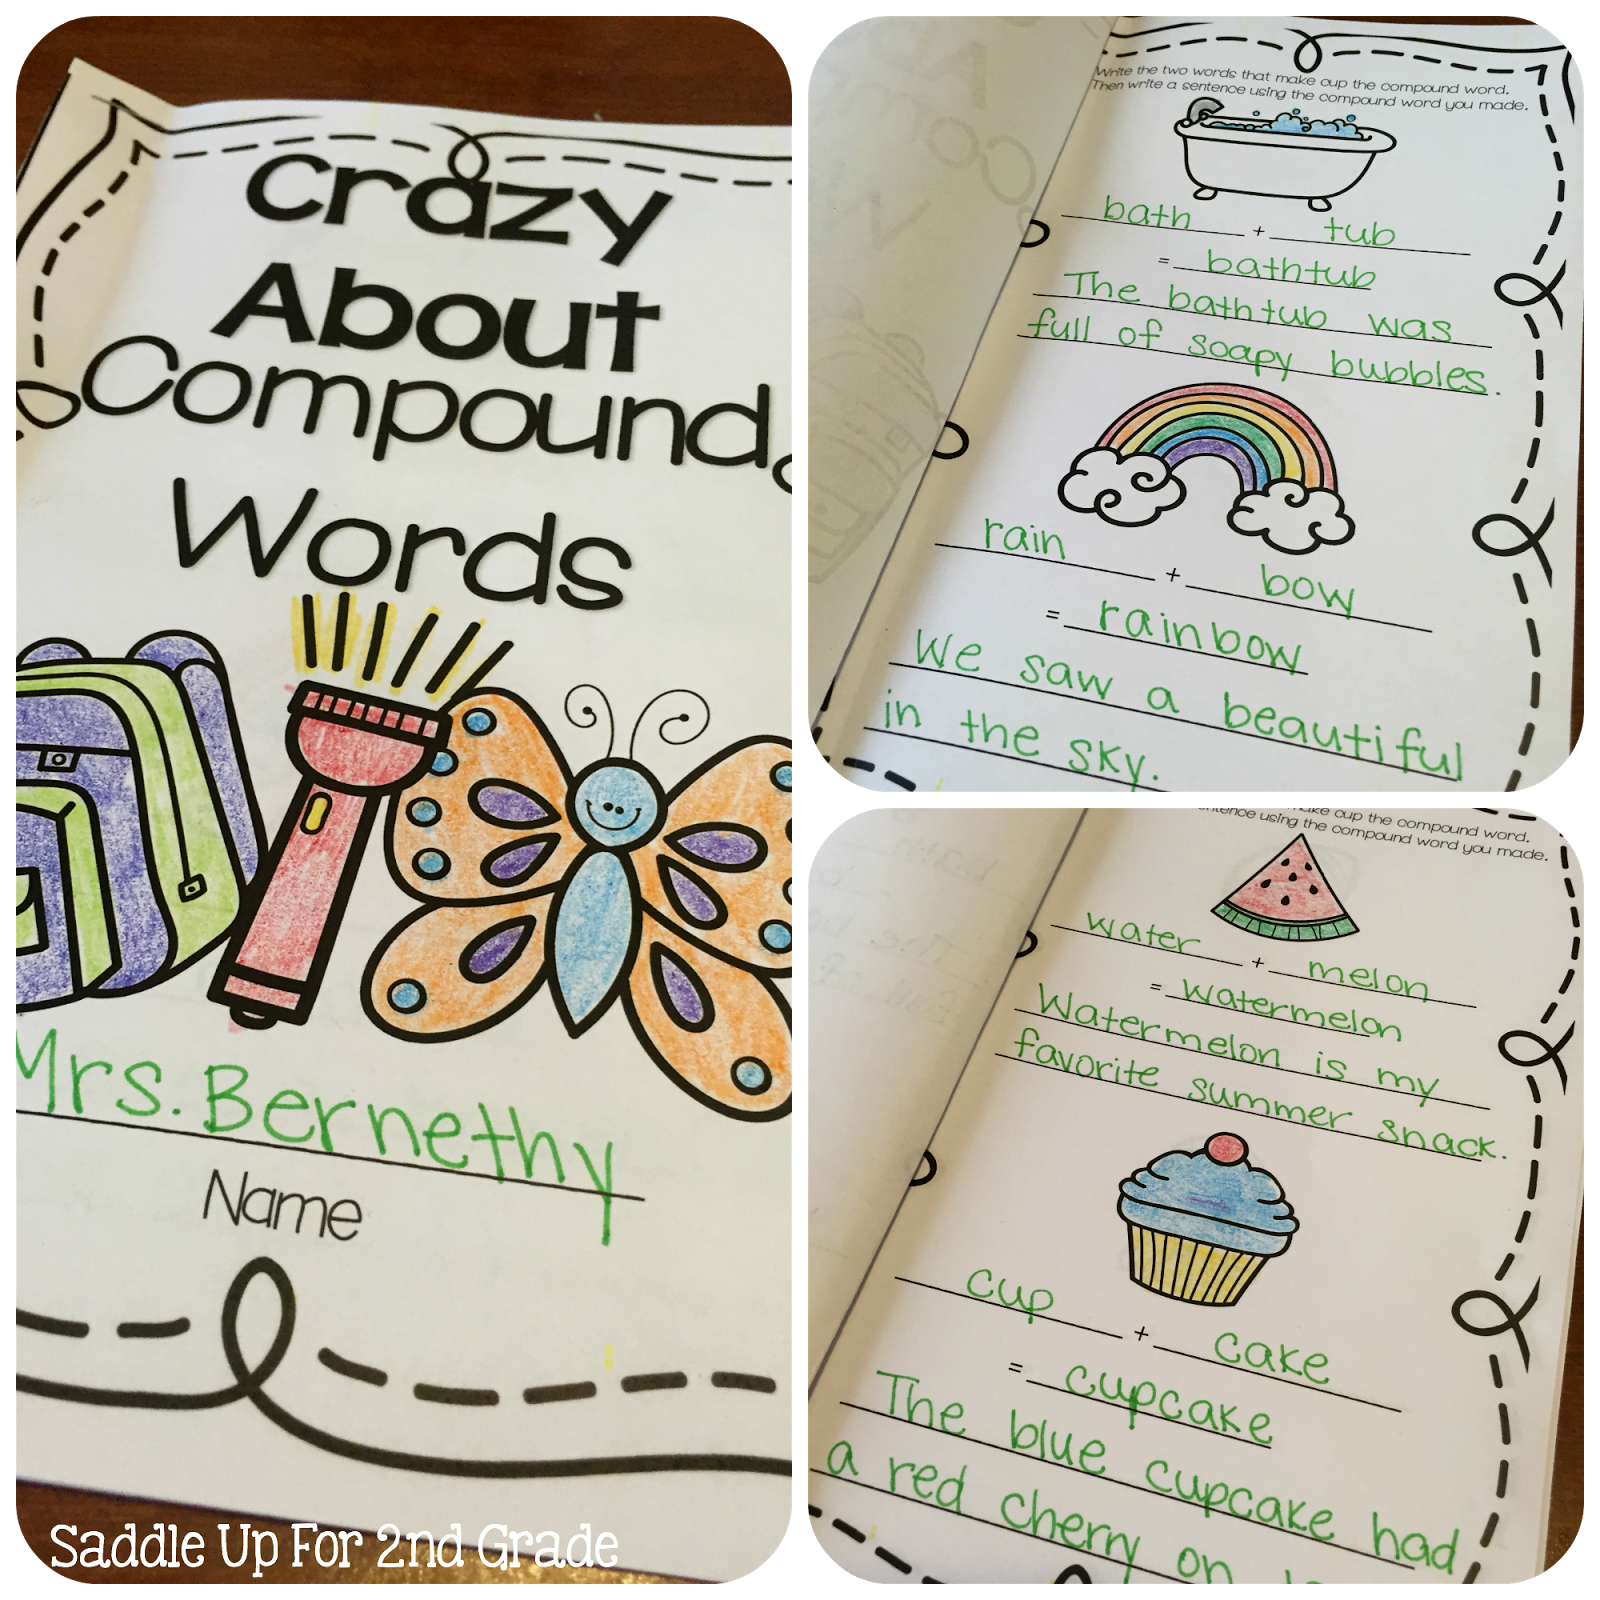 Crazy
About
Compound
Words
Mrs. Bernethy
Name
Saddle Up For 2nd Grade
Write the two words that make cup the compound word.
Then write a sentence using the compound word you made.
bath + tub
= bathtub
The bathtub was
full of soapy bubbles.
rain + bow
= rainbow
We saw a beautiful
in the sky.
make cup the compound word.
sentence using the compound word you made.
water + melon
= watermelon
Watermelon is my
favorite summer snack.
cup + cake
= cupcake
The blue cupcake had
a red cherry on